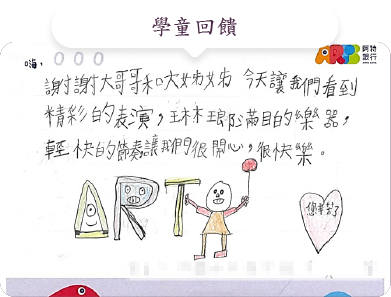 學童回饋
嗨，○○○
阿特
銀行
謝謝大哥哥和大姊姊 今天讓我們看到
精彩的表演，琳琅滿目的樂器，
輕快的節奏讓我們很開心，很快樂。
ART
您辛苦了